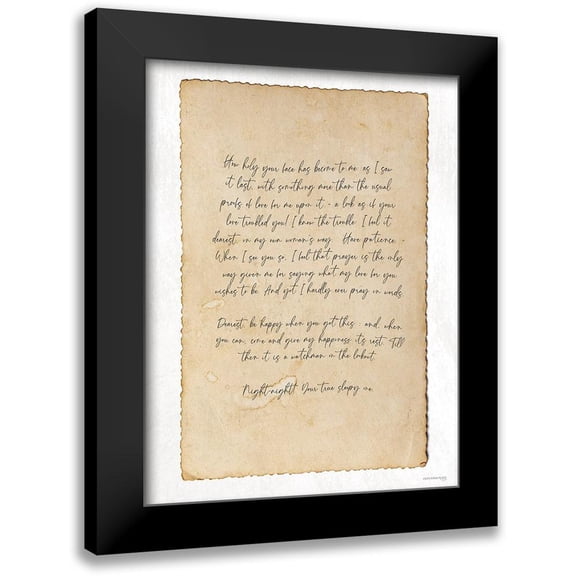 How holy your face has become to me as I saw
it last, with something more than the usual
proofs of love for me upon it - a look as if your
love troubled you! I know the trouble. I feel it
dearest, in my own woman's way. Have patience. -
When I see you so, I feel that prayer is the only
way given me for saying what my love for you
wishes to be. And yet I hardly ever pray in words.
Dearest, be happy when you get this: and, when
you can, come and give my happiness its rest. Till
then it is a watchman on the lookout.
Night-night! Your true sleepy one.